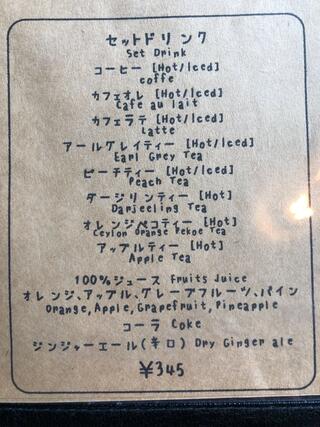 セットドリンク
Set Drink
コーヒー [Hot/Iced]
coffe
カフェオレ [Hot/Iced]
Cafe au lait
カフェラテ [Hot/Iced]
Latte
アールグレイティー [Hot/Iced]
Earl Grey Tea
ピーチティー [Hot/Iced]
Peach Tea
ダージリンティー [Hot]
Darjeeling Tea
オレンジペコティー [Hot]
Ceylon Orange Pekoe Tea
アップルティー [Hot]
Apple Tea
100%ジュース Fruits Juice
オレンジ、アップル、グレープフルーツ、パイン
Orange,Apple,Grapefruit,Pineapple
コーラ Coke
ジンジャーエール(辛口) Dry Ginger ale
¥345